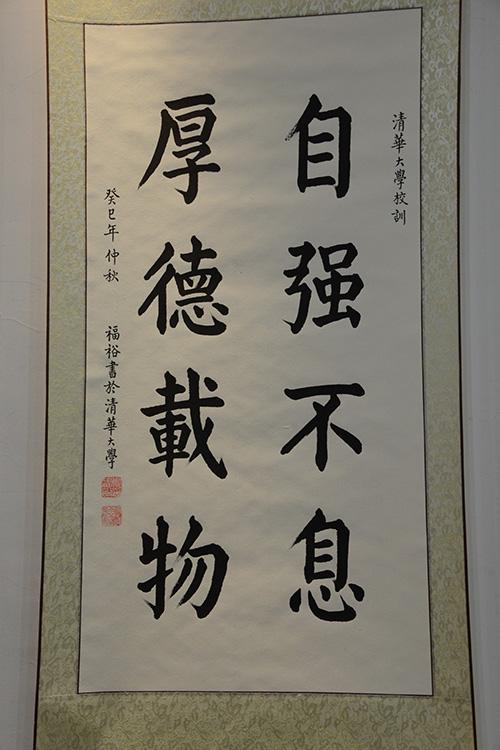 清華大學校訓
自强不息
厚德載物
癸巳年仲秋 福裕書於清華大學